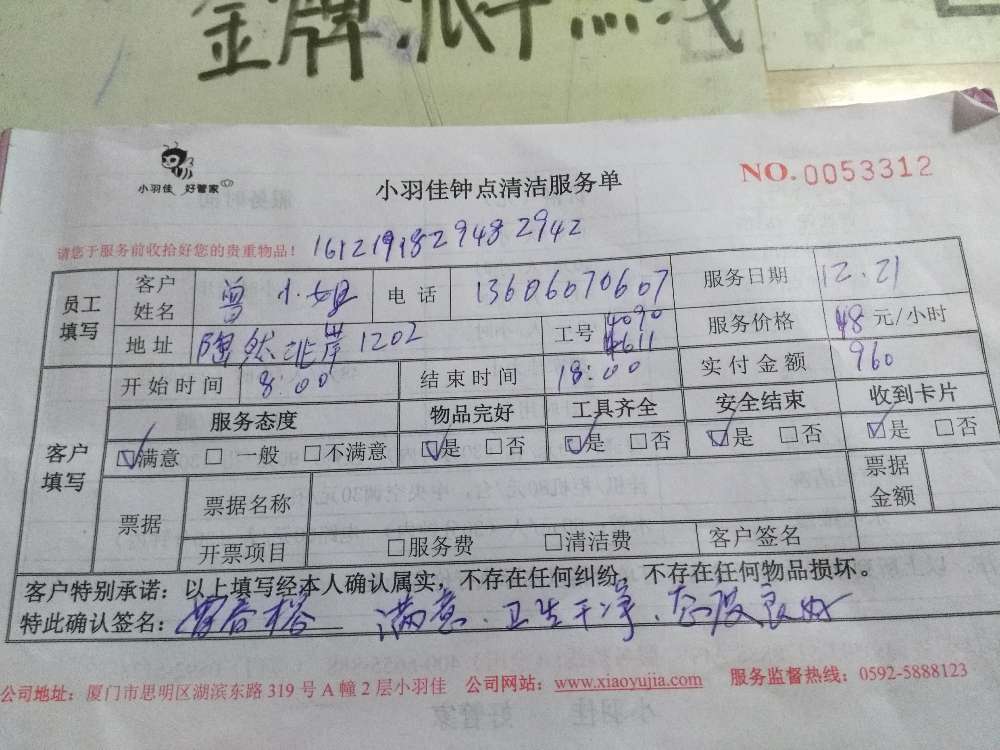 金牌
小羽佳 好管家
小羽佳钟点清洁服务单
NO. 0053312
请您于服务前收拾好您的贵重物品! 161219182948 2942
员工填写 客户姓名 曾小姐 电话 13606070607 服务日期 12.21
地址 陶然北岸1202 工号 4090 4611 服务价格 48元/小时
客户填写 开始时间 8:00 结束时间 18:00 实付金额 960
服务态度 物品完好 工具齐全 安全结束 收到卡片
☑满意 □一般 □不满意 ☑是 □否 ☑是 □否 ☑是 □否 ☑是 □否
票据 票据名称 票据金额
开票项目 □服务费 □清洁费 客户签名
客户特别承诺:以上填写经本人确认属实,不存在任何纠纷,不存在任何物品损坏。
特此确认签名: 满意、卫生干净、态度良好
公司地址:厦门市思明区湖滨东路319号A幢2层小羽佳 公司网站:www.xiaoyujia.com 服务监督热线:0592-5888123